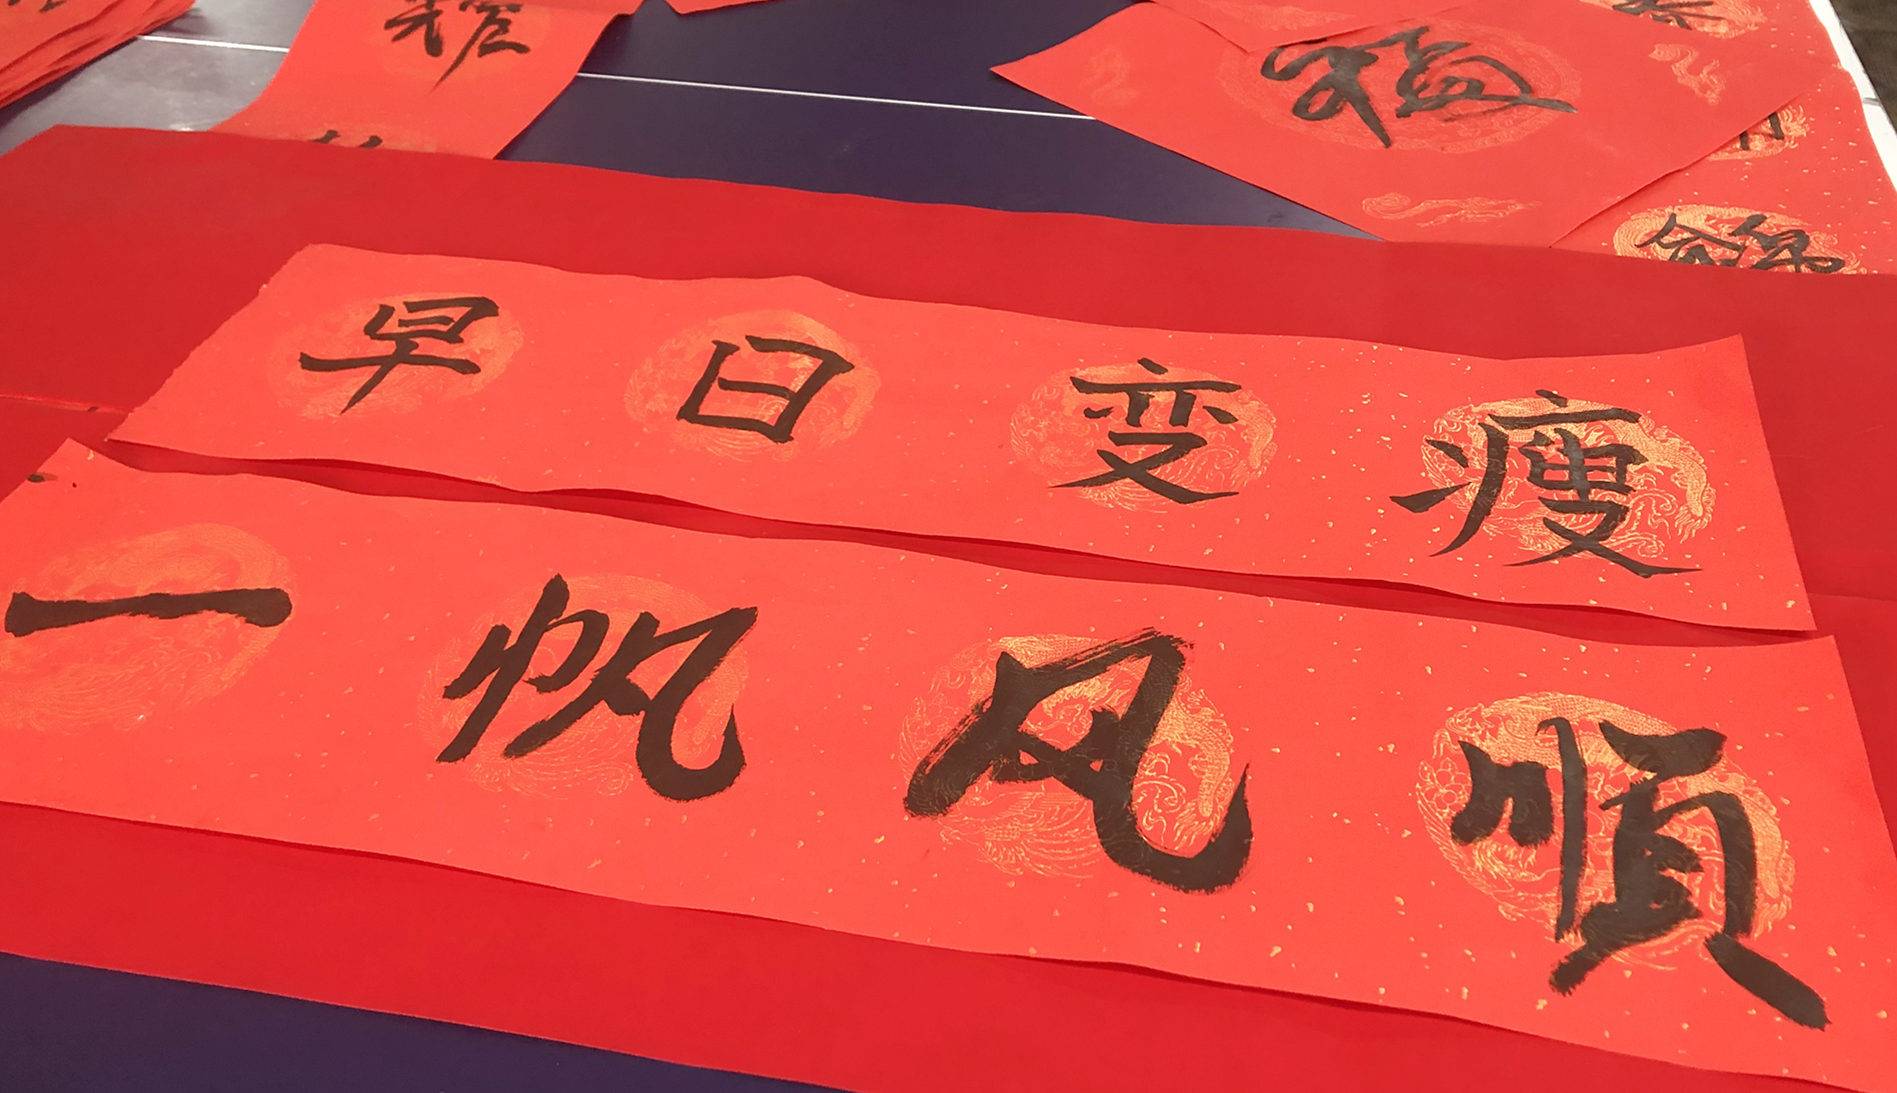 福
早日变瘦
一帆风順